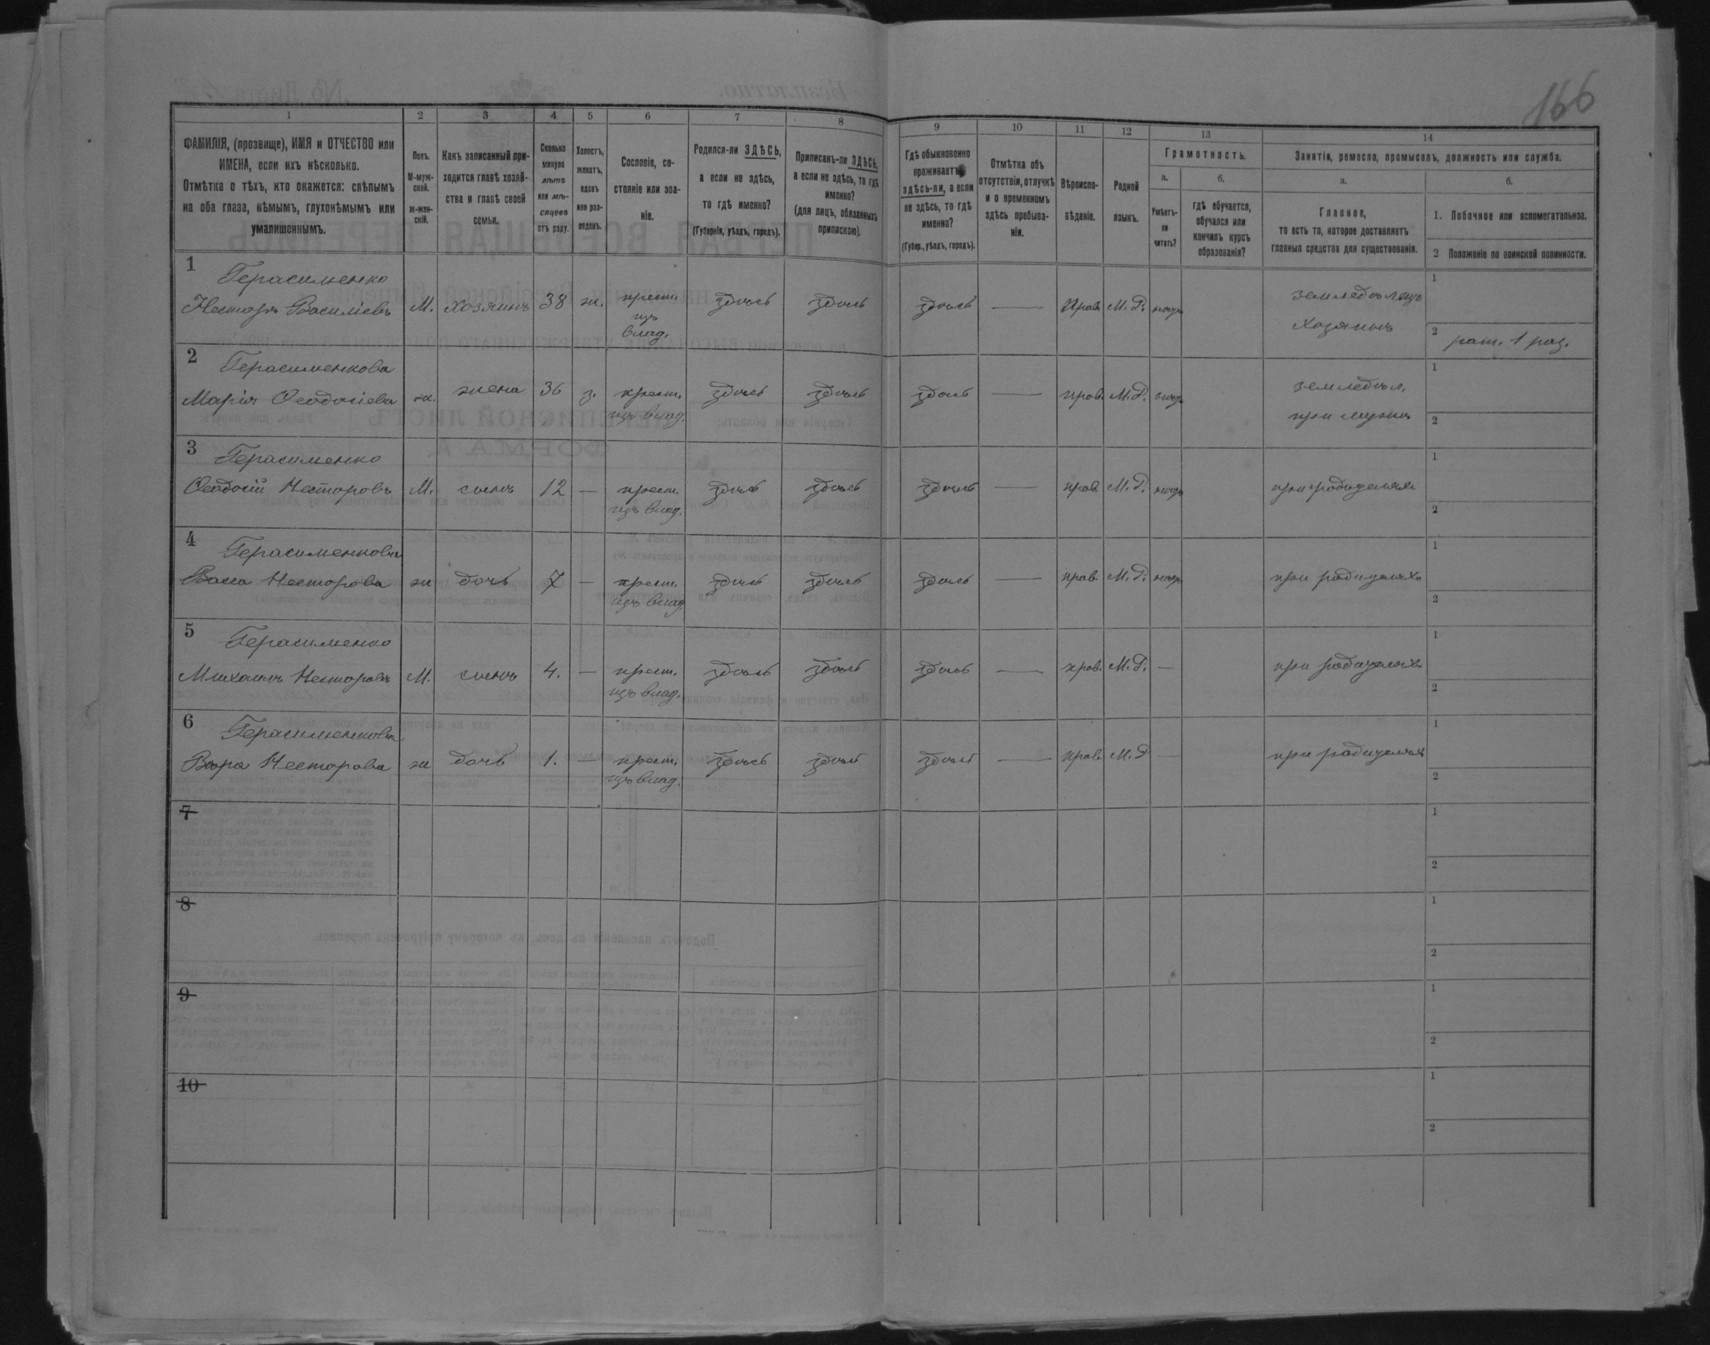 166
1 2 3 4 5 6 7 8 9 10 11 12 13 14
ФАМИЛІЯ, (прозвище), ИМЯ и ОТЧЕСТВО или
ИМЕНА, если ихъ нѣсколько.
Отмѣтка о тѣхъ, кто окажется: слѣпымъ
на оба глаза, нѣмымъ, глухонѣмымъ или
умалишеннымъ.
Полъ.
М-муж-
ской.
ж-жен-
скій.
Какъ записанный при-
ходится главѣ хозяй-
ства и главѣ своей
семьи.
Сколько
минуло
лѣтъ
или мѣ-
сяцевъ
отъ роду.
Холостъ,
женатъ,
вдовъ
или раз-
веденъ.
Сословіе, со-
стояніе или зва-
ніе.
Родился-ли ЗДѢСЬ,
а если не здѣсь,
то гдѣ именно?
(Губернія, уѣздъ, городъ).
Приписанъ-ли ЗДѢСЬ,
а если не здѣсь, то гдѣ
именно?
(для лицъ, обязанныхъ
припискою).
Гдѣ обыкновенно
проживаетъ:
здѣсь-ли, а если
не здѣсь, то гдѣ
именно?
(Губер., уѣздъ, городъ).
Отмѣтка объ
отсутствіи, отлучкѣ
и о временномъ
здѣсь пребыва-
ніи.
Вѣроиспо-
вѣданіе.
Родной
языкъ.
Грамотность.
а.
Умѣетъ-
ли
читать?
б.
гдѣ обучается,
обучался или
кончилъ курсъ
образованія?
Занятія, ремесло, промыселъ, должность или служба.
а.
Главное,
то есть то, которое доставляетъ
главныя средства для существованія.
б.
1. Побочное или вспомогательное.
2 Положеніе по воинской повинности.
1 Герасименко
Несторъ Василіевъ М. хозяинъ 38 ж. крест. изъ влад. здѣсь здѣсь здѣсь — прав. М. Р. негр. земледѣлецъ хозяинъ 1
2 рат. 1 раз.
2 Герасименкова
Марія Ѳеодосіева ж. жена 36 з. крест. изъ влад. здѣсь здѣсь здѣсь — прав. М. Р. негр. земледѣл. при мужѣ 1
2
3 Герасименко
Ѳеодосій Несторовъ М. сынъ 12 — крест. изъ влад. здѣсь здѣсь здѣсь — прав. М. Р. негр. при родителяхъ 1
2
4 Герасименкова
Васса Несторова ж дочь 7 — крест. изъ влад. здѣсь здѣсь здѣсь — прав. М. Р. негр. при родителяхъ 1
2
5 Герасименко
Михаилъ Несторовъ М. сынъ 4. — крест. изъ влад. здѣсь здѣсь здѣсь — прав. М. Р. — при родителяхъ 1
2
6 Герасименкова
Вѣра Несторова ж дочь 1. крест. изъ влад. здѣсь здѣсь здѣсь — прав. М. Р — при родителяхъ 1
2
7 1
2
8 1
2
9 1
2
10 1
2